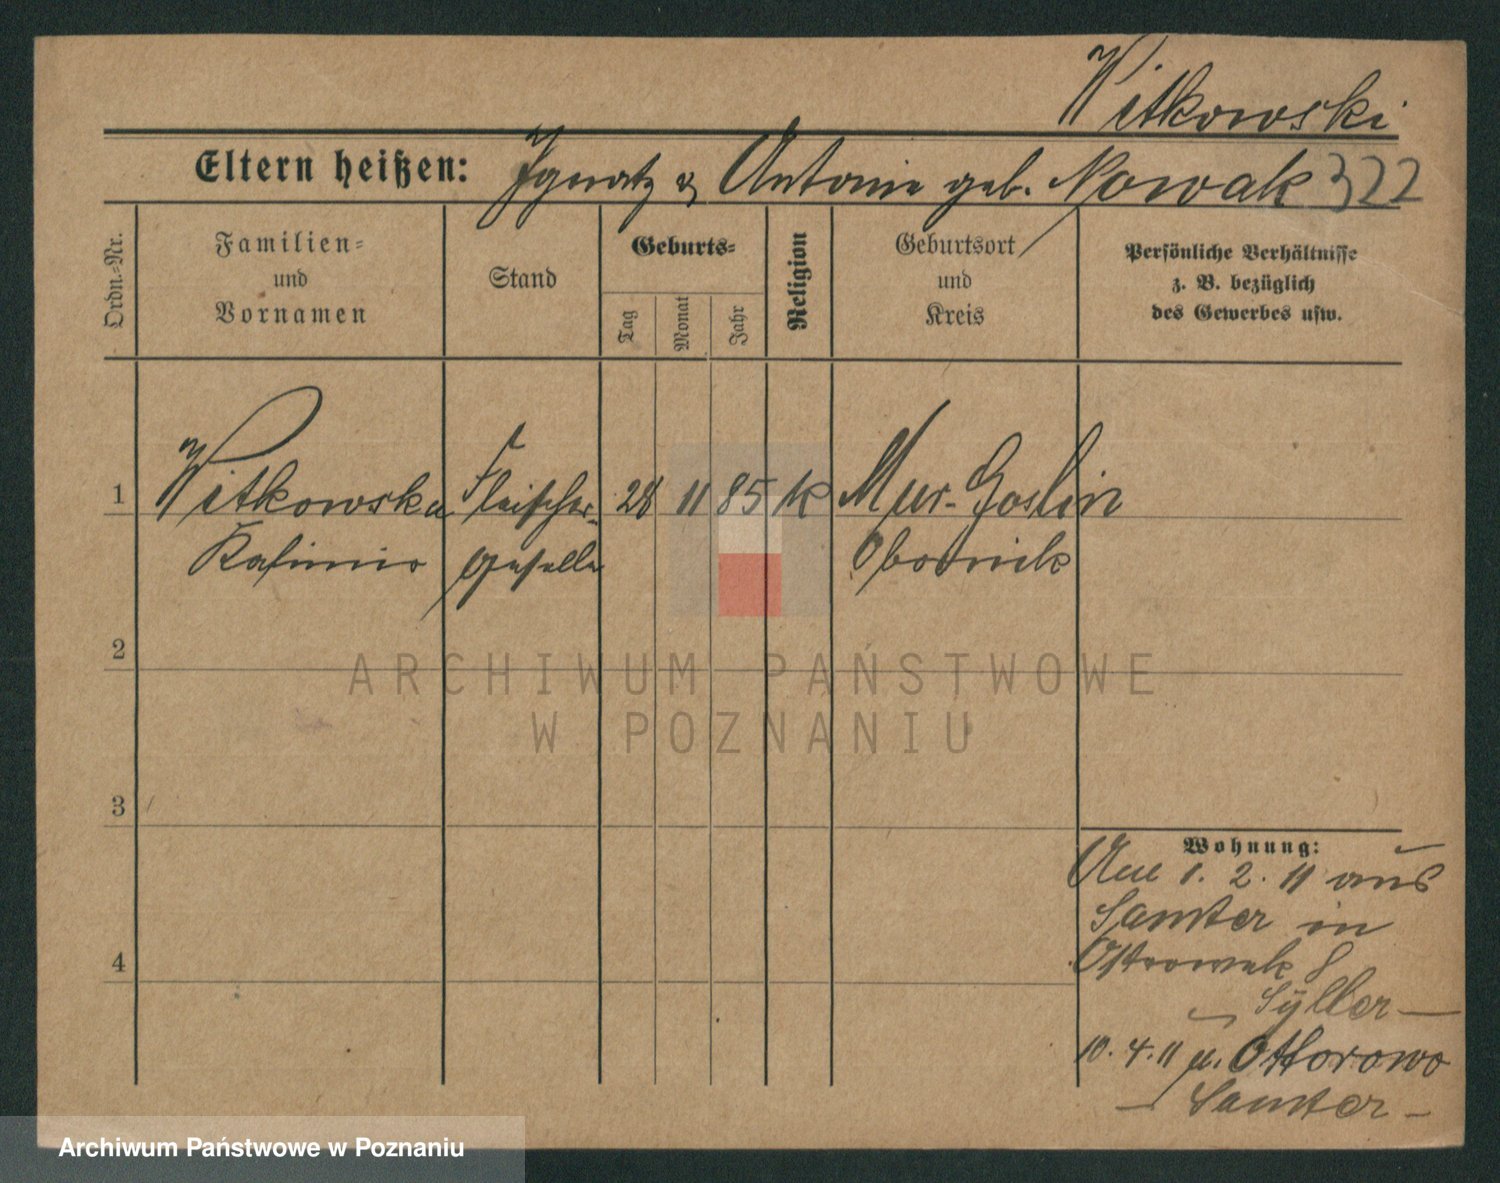 Witkowski
Eltern heißen: Ignatz & Antonie geb. Nowak 322
Ordn.-Nr.
Familien-
und
Vornamen
Stand
Geburts-
Tag
Monat
Jahr
Religion
Geburtsort
und
Kreis
Persönliche Verhältnisse
z. B. bezüglich
des Gewerbes usw.
1 Witkowska Fleischer- 28 11 85 k Mur-Goslin
Kasimir geselle Obornik
2
3
4
Wohnung:
Am 1. 2. 11 aus
Samter in
Ostrowek 8
Syller
10. 4. 11 n. Ottorowo
Samter
ARCHIWUM PAŃSTWOWE
W POZNANIU
Archiwum Państwowe w Poznaniu